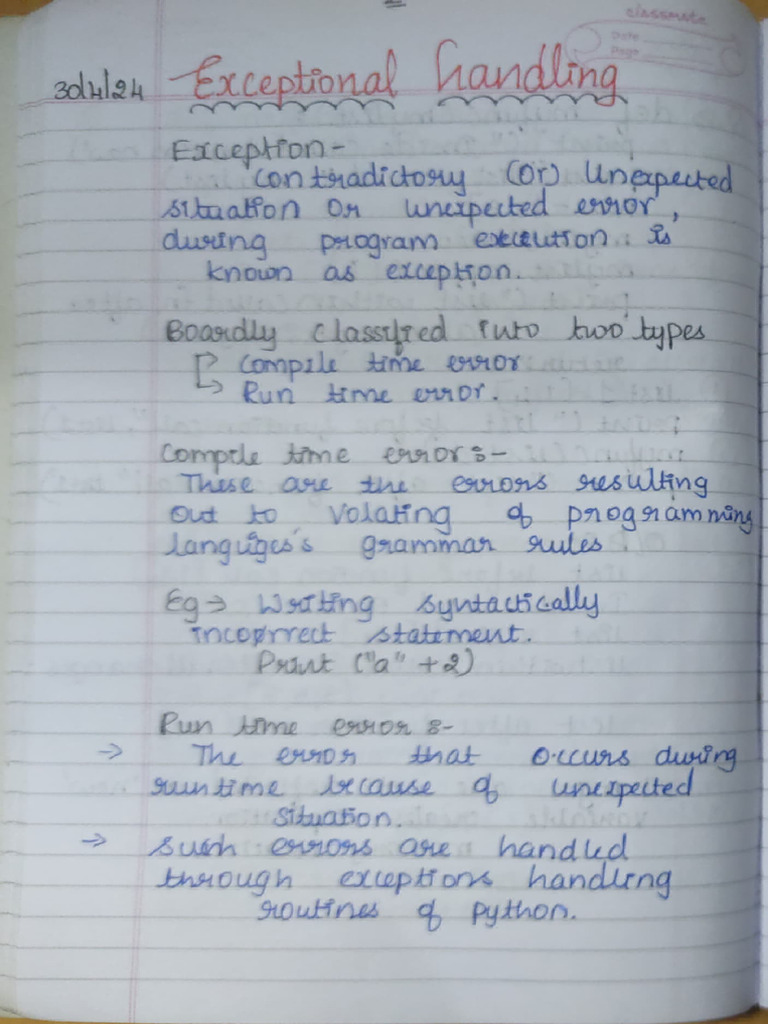 classmate
Date
Page
30/4/24 Exceptional handling
Exception-
contradictory (Or) Unexpected
situation Or unexpected error,
during program execution is
known as exception.
Boardly classified into two types
Compile time error
Run time error.
Compile time error :-
These are the errors resulting
out to volating of programming
languiges's grammar rules.
Eg → Writing syntactically
incorrect statement.
Print ("a" + 2)
Run time error :-
→ The error that occurs during
runtime because of unexpected
situation.
→ such errors are handled
through exceptions handling
routines of python.